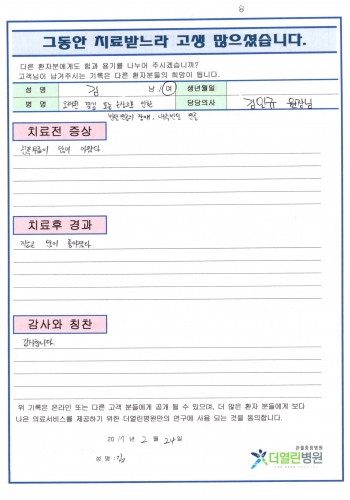 8
그동안 치료받느라 고생 많으셨습니다.
다른 환자분에게도 힘과 용기를 나누어 주시겠습니까?
고객님이 남겨주시는 기록은 다른 환자분들의 희망이 됩니다.
성 명 김 남/여 생년월일
병 명 오래된 담당의사 김인규 원장님
치료전 증상
많이 아팠다
치료후 경과
지금은 많이 좋아졌다
감사와 칭찬
감사합니다
위 기록은 온라인 또는 다른 고객 분들에게 공개 될 수 있으며, 더 많은 환자 분들에게 보다
나은 의료서비스를 제공하기 위한 더열린병원만의 연구에 사용 되는 것을 동의합니다.
2017년 2월 24일
성 명 : 김
관절중점병원
더열린병원